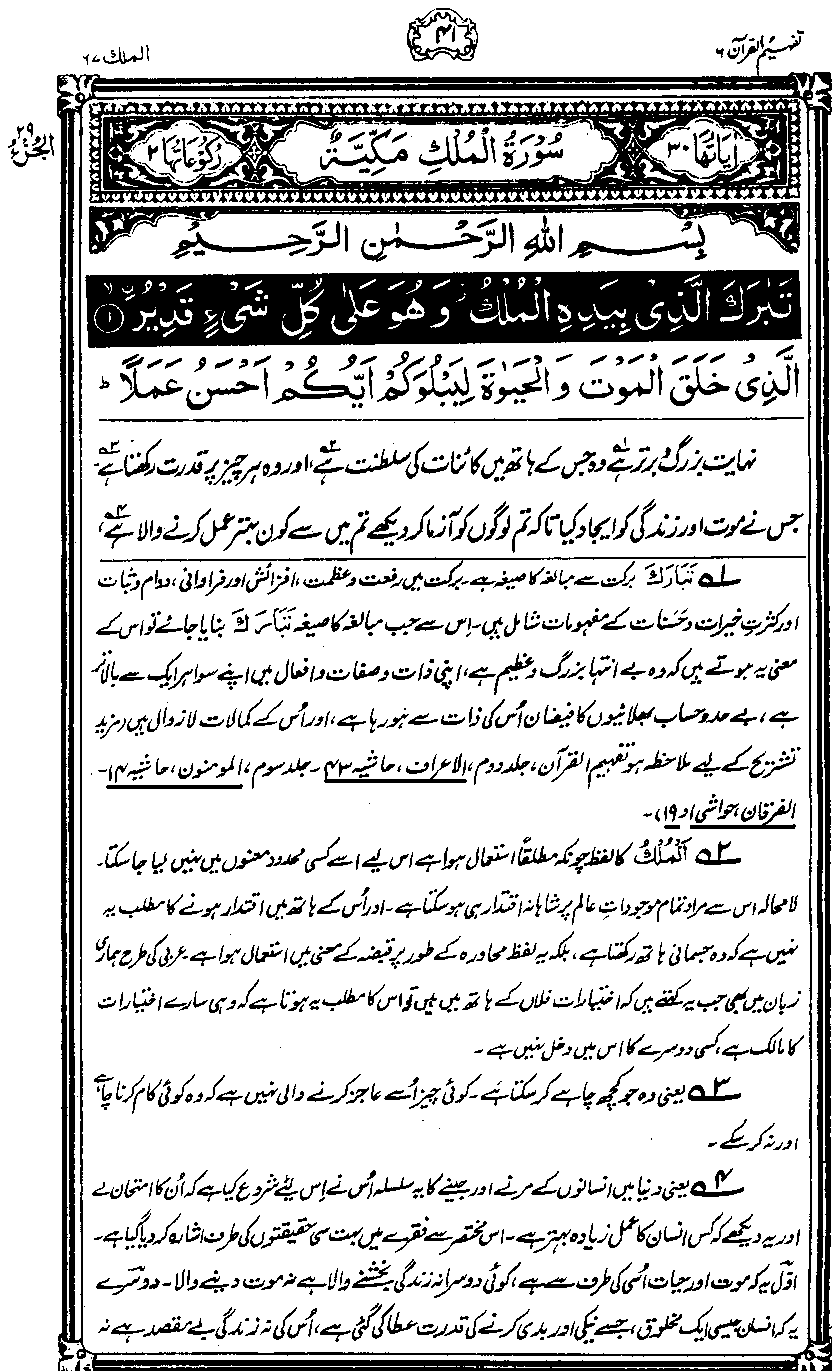 تفہیم القرآن ۶
۴۱
الملک ۶۷
الجزء ۲۹
اٰیاتھا ۳۰
سُوْرَۃُ الْمُلْکِ مَکِّیَّۃٌ
رکوعاتھا ۲
بِسْمِ اللهِ الرَّحْمٰنِ الرَّحِیْمِ
تَبٰرَكَ الَّذِیْ بِیَدِهِ الْمُلْكُ ز وَ هُوَ عَلٰی کُلِّ شَیْءٍ قَدِیْرُۨ ۙ﴿۱﴾
الَّذِیْ خَلَقَ الْمَوْتَ وَ الْحَیٰوةَ لِیَبْلُوَکُمْ اَیُّکُمْ اَحْسَنُ عَمَلًا ؕ
نہایت بزرگ و برتر ہے۱؎ وہ جس کے ہاتھ میں کائنات کی سلطنت ہے۲؎، اور وہ ہر چیز پر قدرت رکھتا ہے۳؎۔
جس نے موت اور زندگی کو ایجاد کیا تاکہ تم لوگوں کو آزما کر دیکھے تم میں سے کون بہتر عمل کرنے والا ہے۴؎،
۱؎ تَبَارَكَ برکت سے مبالغہ کا صیغہ ہے۔ برکت میں رفعت و عظمت، افزائش اور فراوانی، دوام و ثبات
اور کثرتِ خیرات و حَسَنات کے مفہومات شامل ہیں۔ اِس سے جب مبالغہ کا صیغہ تَبَارَكَ بنایا جائے تو اس کے
معنی یہ ہوتے ہیں کہ وہ بے انتہا بزرگ و عظیم ہے، اپنی ذات و صفات و افعال میں اپنے سوا ہر ایک سے بالاتر
ہے، بے حد و حساب بھلائیوں کا فیضان اُس کی ذات سے ہو رہا ہے، اور اُس کے کمالات لازوال ہیں (مزید
تشریح کے لیے ملاحظہ ہو تفہیم القرآن، جلد دوم، الاعراف، حاشیہ ۴۳۔ جلد سوم، المومنون، حاشیہ ۱۴۔
الفرقان، حواشی ۱ و ۱۹)۔
۲؎ اَلْمُلْكُ کا لفظ چونکہ مطلقًا استعمال ہوا ہے اس لیے اسے کسی محدود معنوں میں نہیں لیا جا سکتا۔
لامحالہ اس سے مراد تمام موجوداتِ عالم پر شاہانہ اقتدار ہی ہو سکتا ہے۔ اور اُس کے ہاتھ میں اقتدار ہونے کا مطلب یہ
نہیں ہے کہ وہ جسمانی ہاتھ رکھتا ہے، بلکہ یہ لفظ محاورہ کے طور پر قبضہ کے معنی میں استعمال ہوا ہے۔ عربی کی طرح ہماری
زبان میں بھی جب یہ کہتے ہیں کہ اختیارات فلاں کے ہاتھ میں ہیں تو اس کا مطلب یہ ہوتا ہے کہ وہی سارے اختیارات
کا مالک ہے، کسی دوسرے کا اس میں دخل نہیں ہے۔
۳؎ یعنی وہ جو کچھ چاہے کر سکتا ہے۔ کوئی چیز اُسے عاجز کرنے والی نہیں ہے کہ وہ کوئی کام کرنا چاہے
اور نہ کر سکے۔
۴؎ یعنی دنیا میں انسانوں کے مرنے اور جینے کا یہ سلسلہ اُس نے اِس لیٔے شروع کیا ہے کہ اُن کا امتحان لے
اور یہ دیکھے کہ کس انسان کا عمل زیادہ بہتر ہے۔ اس مختصر سے فقرے میں بہت سی حقیقتوں کی طرف اشارہ کر دیا گیا ہے۔
اوّل یہ کہ موت اور حیات اُسی کی طرف سے ہے، کوئی دوسرا نہ زندگی بخشنے والا ہے نہ موت دینے والا۔ دوسرے
یہ کہ انسان جیسی ایک مخلوق، جسے نیکی اور بدی کرنے کی قدرت عطا کی گئی ہے، اُس کی نہ زندگی بے مقصد ہے نہ